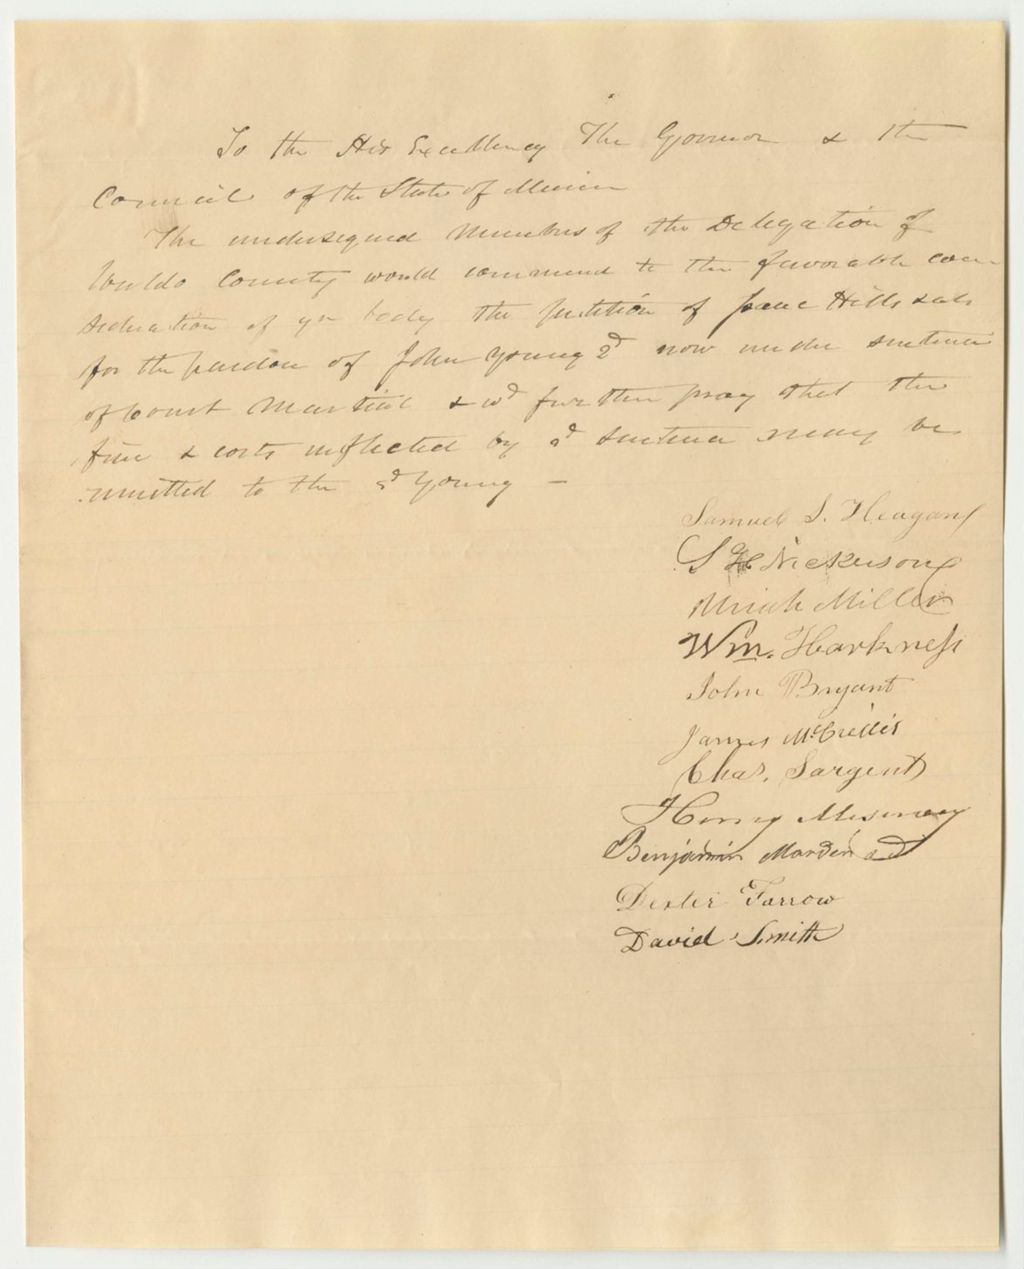 To the His Excellency The Governor & the
Council of the State of Maine
The undersigned Members of the Delegation of
Waldo County would commend to the favorable con-
sideration of yr body the petition of Isaac Hills & als
for the pardon of John Young 2d now under sentence
of Court Martial & wd further pray that the
fine & costs inflicted by sd sentence may be
remitted to the sd Young —
Samuel S. Heagan
S H Nickerson
Uriah Miller
Wm. Harkness
John Bryant
James McCrillis
Chas. Sargent
Henry
Benjamin Marden 2d
Dexter Farrow
David Smith